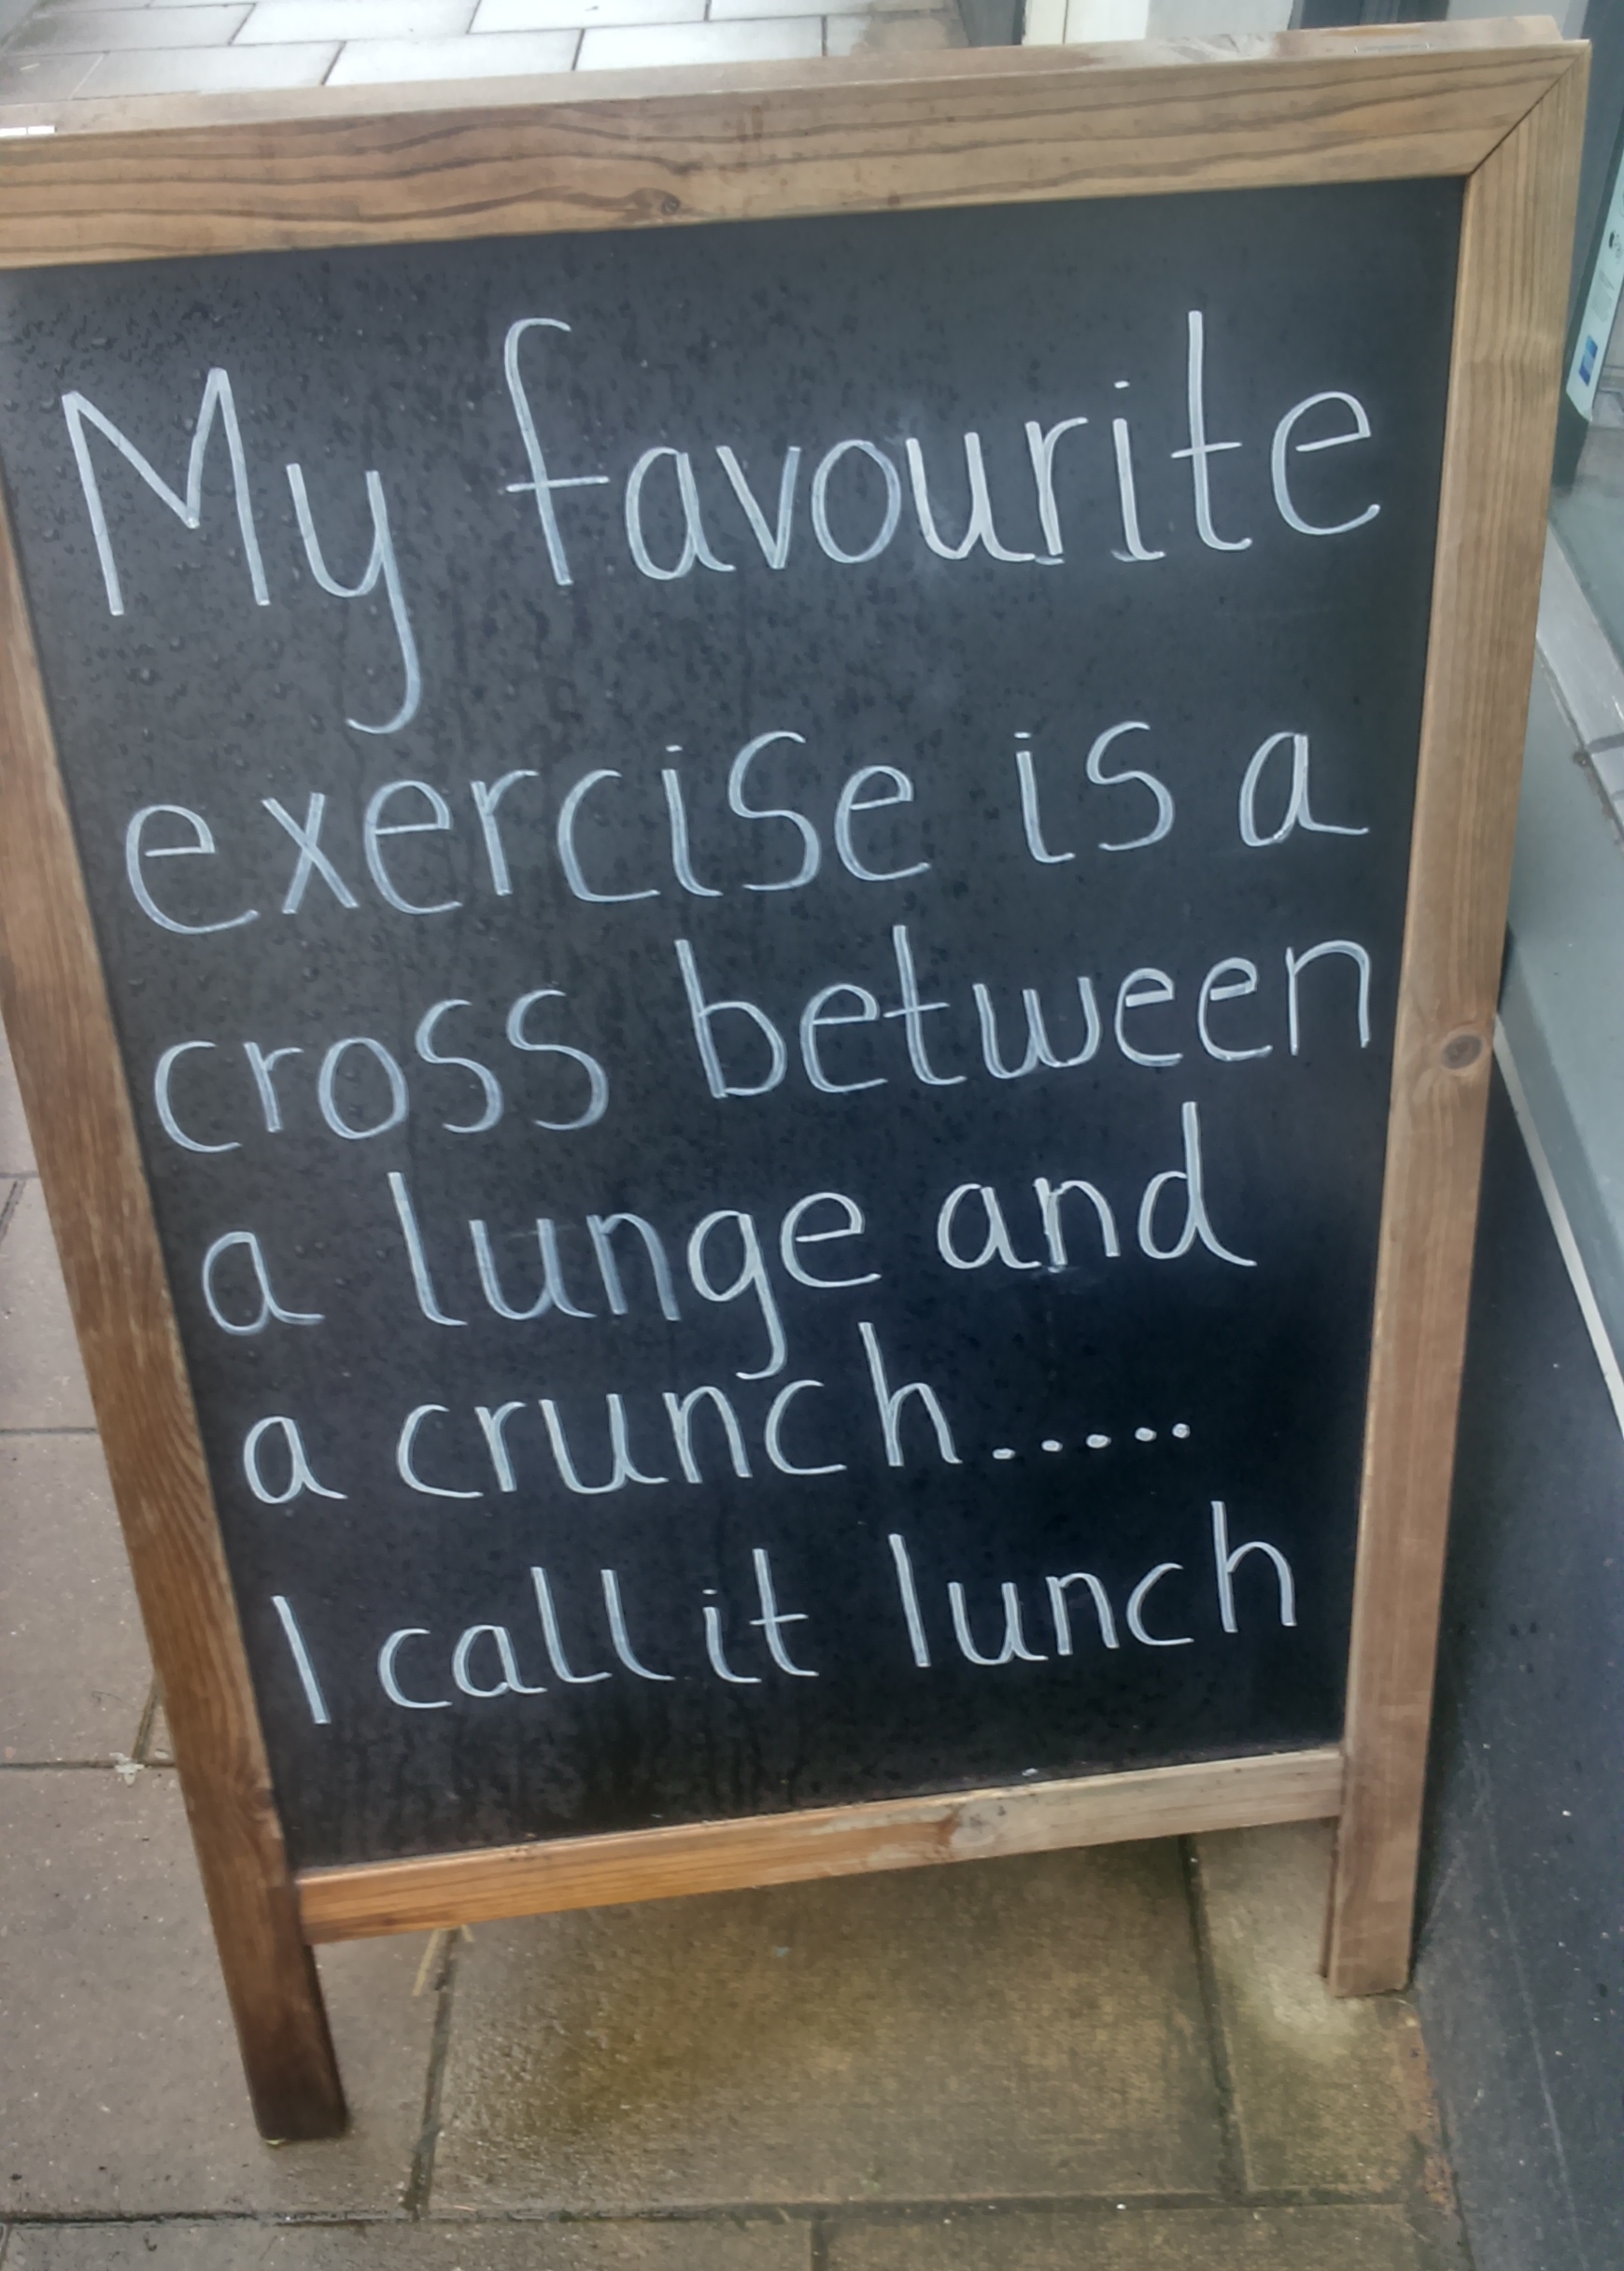 My favourite
exercise is a
cross between
a lunge and
a crunch.....
I call it lunch